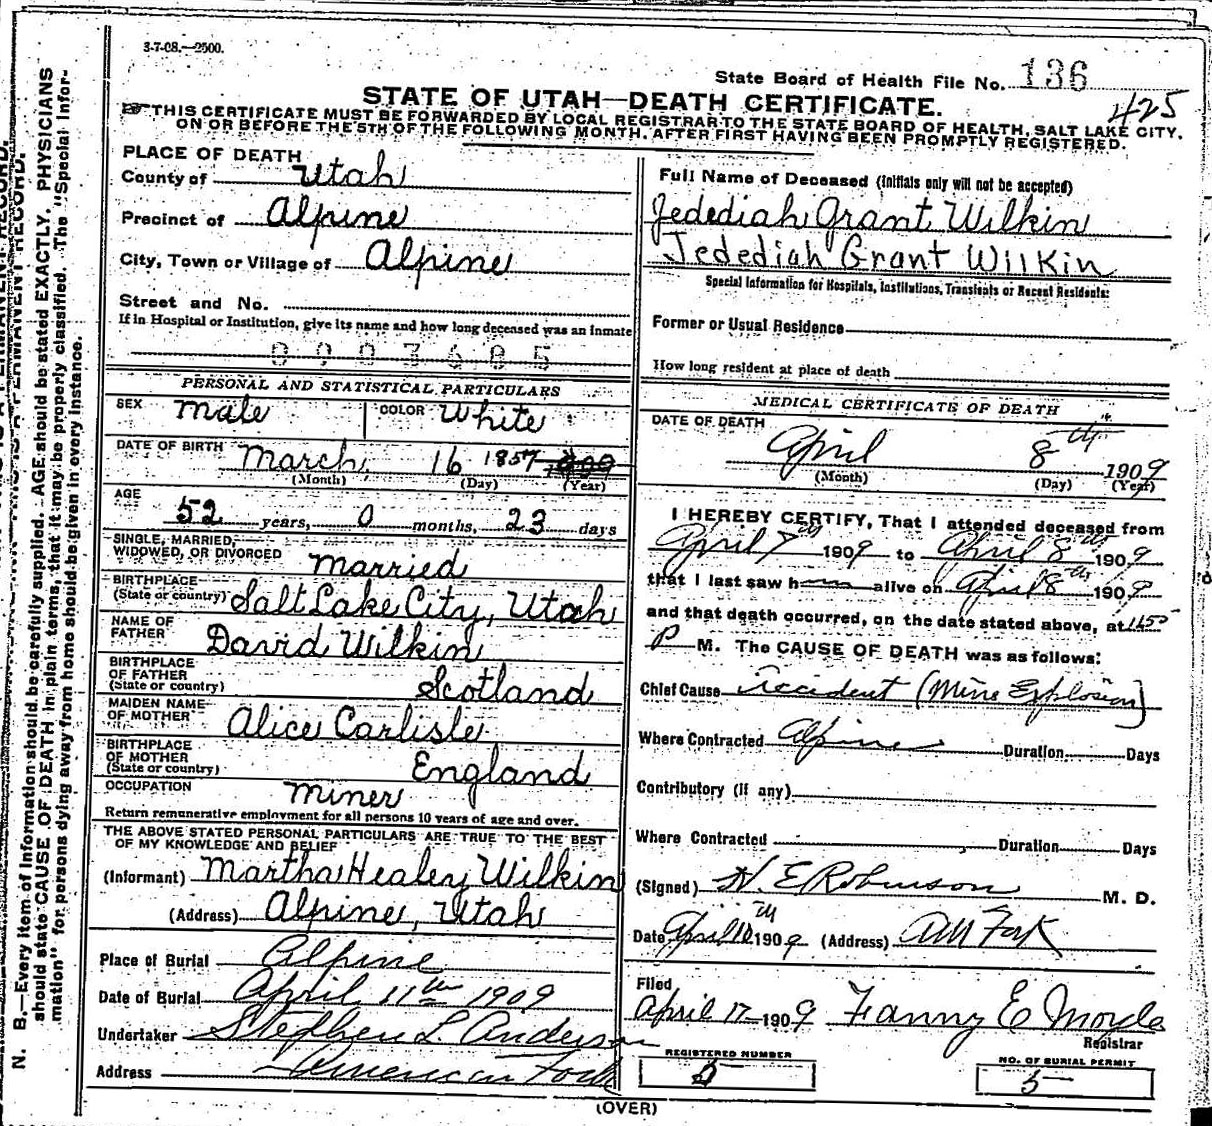 3-7-08.—2500.
State Board of Health File No. 136
425
STATE OF UTAH—DEATH CERTIFICATE.
THIS CERTIFICATE MUST BE FORWARDED BY LOCAL REGISTRAR TO THE STATE BOARD OF HEALTH, SALT LAKE CITY,
ON OR BEFORE THE 5TH OF THE FOLLOWING MONTH, AFTER FIRST HAVING BEEN PROMPTLY REGISTERED.
PLACE OF DEATH
County of Utah
Precinct of Alpine
City, Town or Village of Alpine
Street and No.
If in Hospital or Institution, give its name and how long deceased was an inmate
PERSONAL AND STATISTICAL PARTICULARS
SEX Male COLOR White
DATE OF BIRTH March 16 1857
(Month) (Day) (Year)
AGE
52 years, 0 months, 23 days
SINGLE, MARRIED,
WIDOWED, OR DIVORCED Married
BIRTHPLACE
(State or country) Salt Lake City, Utah
NAME OF
FATHER David Wilkin
BIRTHPLACE
OF FATHER
(State or country) Scotland
MAIDEN NAME
OF MOTHER Alice Carlisle
BIRTHPLACE
OF MOTHER
(State or country) England
OCCUPATION Miner
Return remunerative employment for all persons 10 years of age and over.
THE ABOVE STATED PERSONAL PARTICULARS ARE TRUE TO THE BEST
OF MY KNOWLEDGE AND BELIEF
(Informant) Martha Healey Wilkin
(Address) Alpine, Utah
Place of Burial Alpine
Date of Burial April 11th 1909
Undertaker Stephen L. Anderson
Address American Fork
Full Name of Deceased (initials only will not be accepted)
Jedediah Grant Wilkin
Jedediah Grant Wilkin
Special Information for Hospitals, Institutions, Transients or Recent Residents:
Former or Usual Residence
How long resident at place of death
MEDICAL CERTIFICATE OF DEATH
DATE OF DEATH
April 8th 1909
(Month) (Day) (Year)
I HEREBY CERTIFY, That I attended deceased from
April 7th 1909 to April 8th 1909
that I last saw h alive on April 8th 1909
and that death occurred, on the date stated above, at
P M. The CAUSE OF DEATH was as follows:
Chief Cause Accident (Mine Explosion)
Where Contracted Alpine Duration Days
Contributory (if any)
Where Contracted Duration Days
(Signed) H. E Robinson M. D.
Date April 10th 1909 (Address) Am Fork
Filed
April 17 1909 Fanny E Moyle
Registrar
REGISTERED NUMBER
5
NO. OF BURIAL PERMIT
5
(OVER)
N. B.—Every item of information should be carefully supplied. AGE should be stated EXACTLY. PHYSICIANS
should state CAUSE OF DEATH in plain terms, that it may be properly classified. The "Special Infor-
mation" for persons dying away from home should be given in every instance.